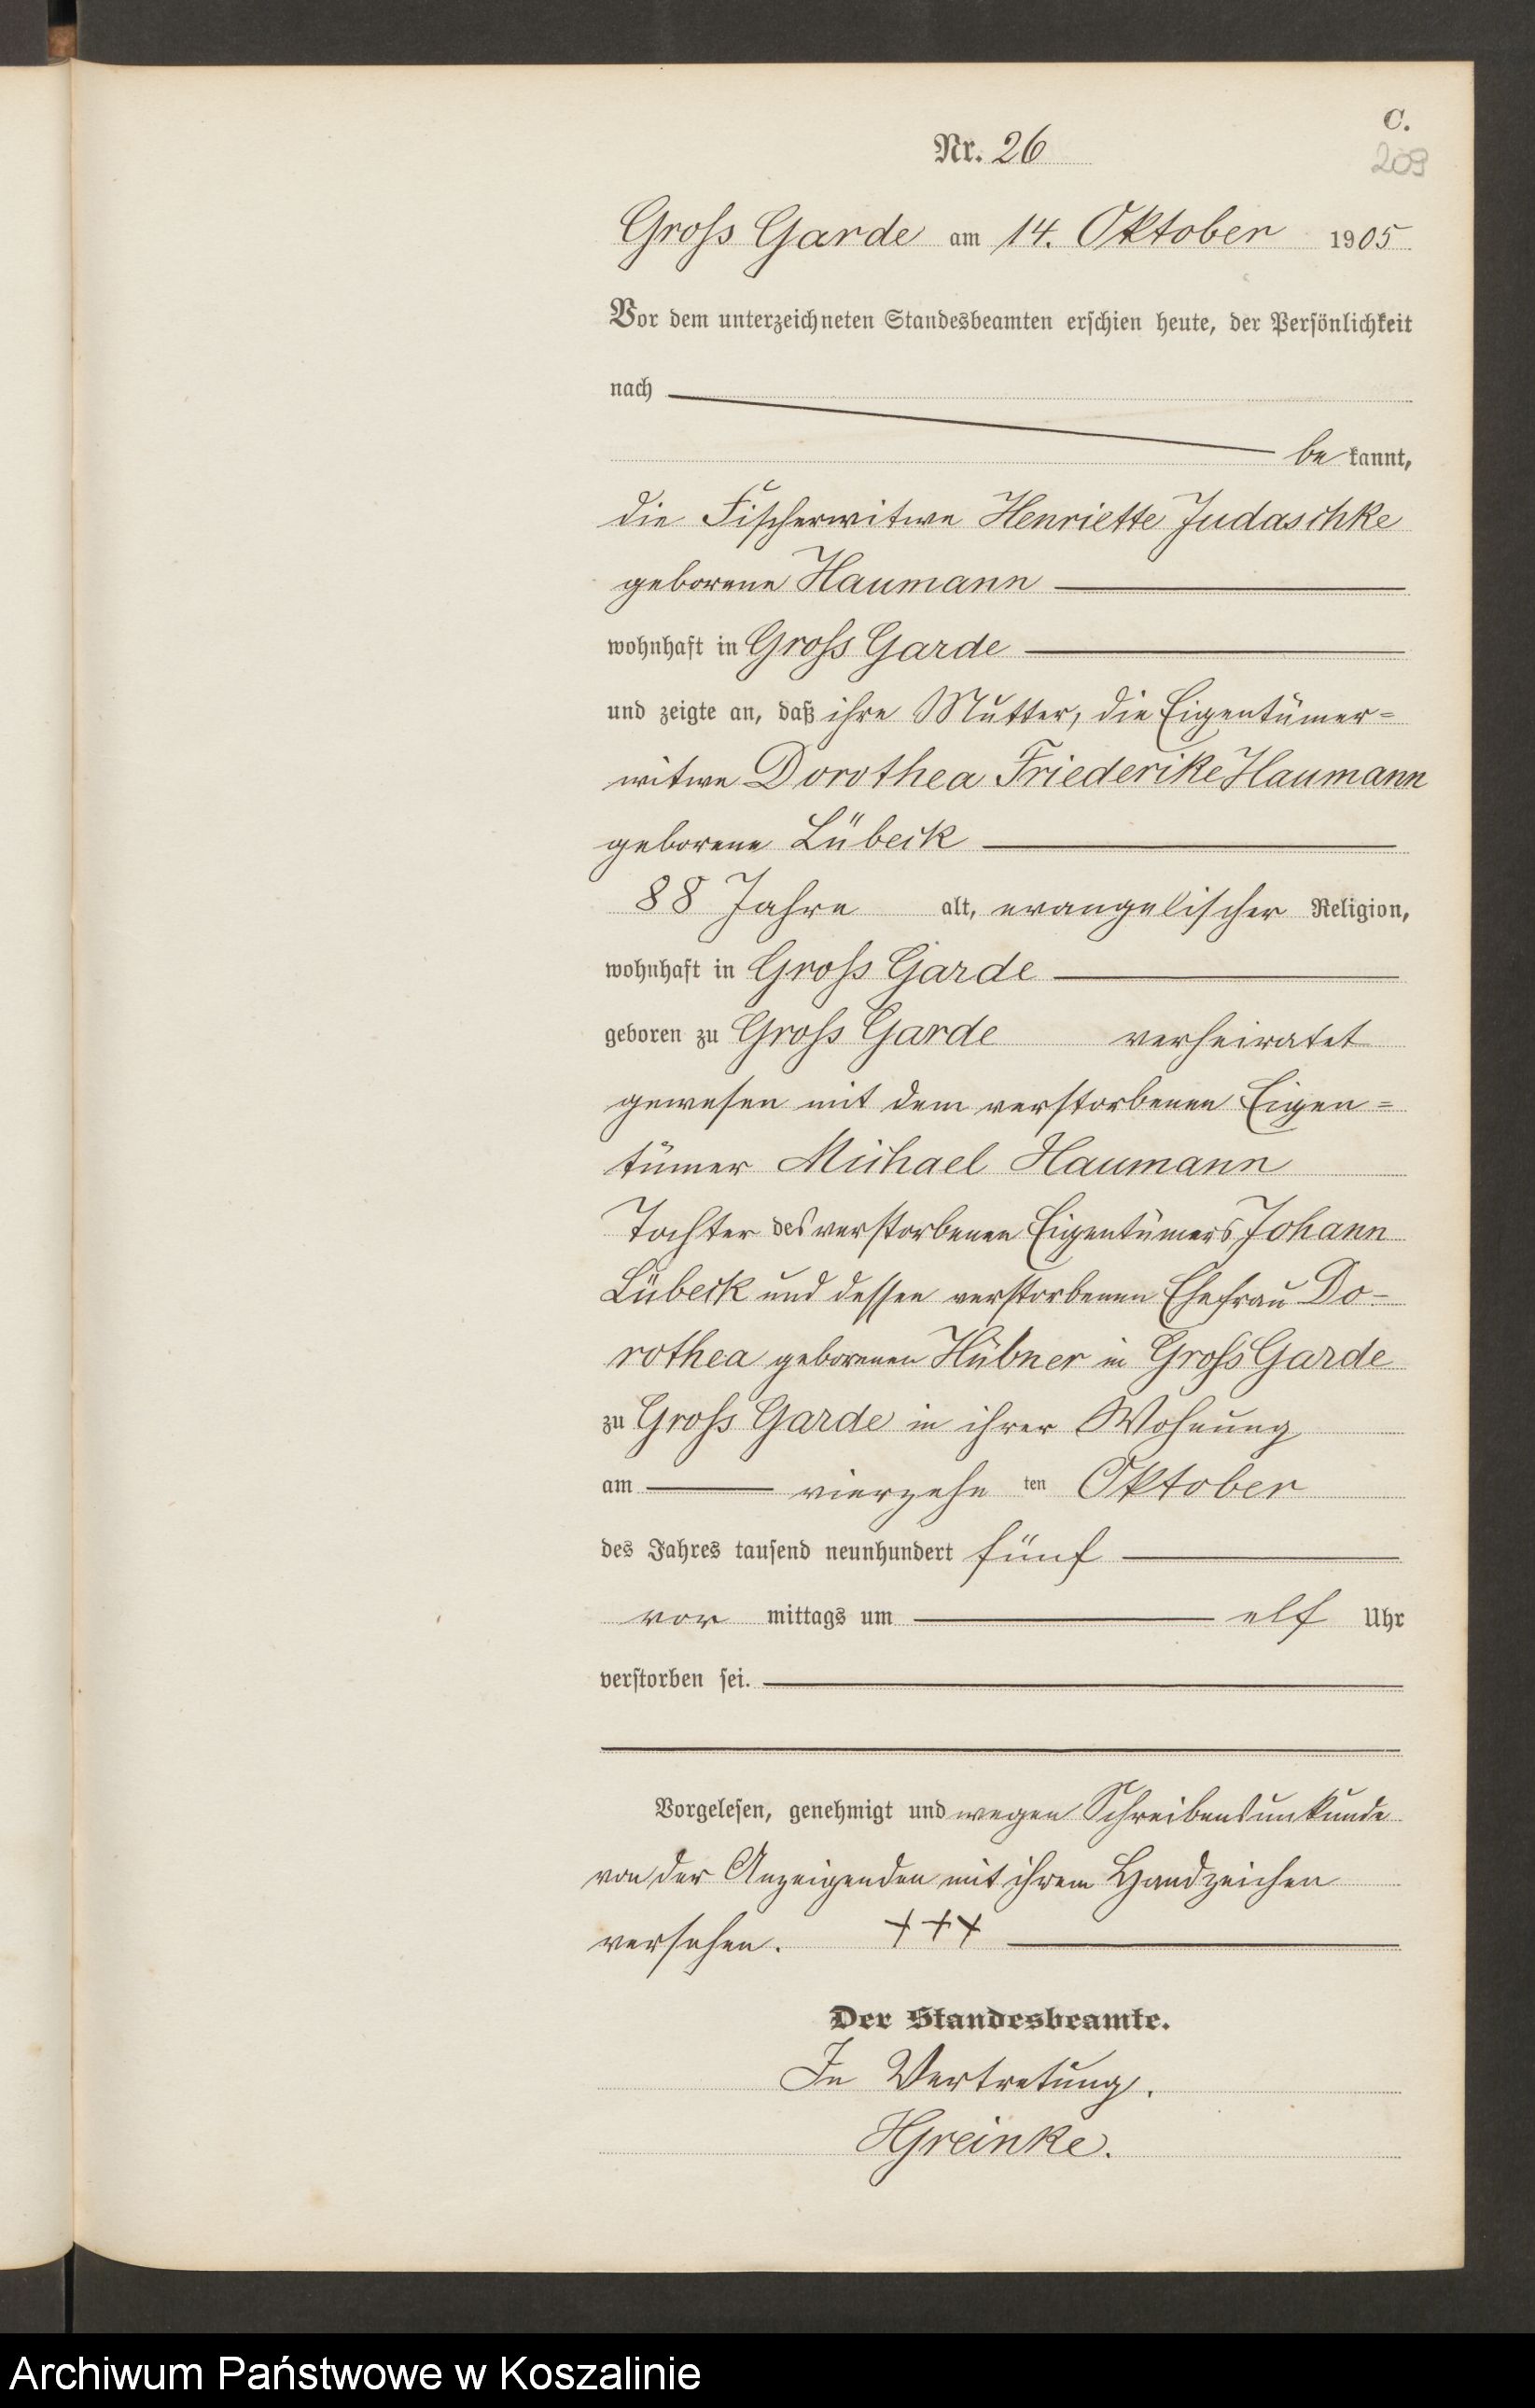 C.
Nr. 26
209
Gross Garde am 14. Oktober 1905
Vor dem unterzeichneten Standesbeamten erschien heute, der Persönlichkeit
nach
be kannt,
die Fischerwitwe Henriette Judaschke
geborene Haumann
wohnhaft in Gross Garde
und zeigte an, daß ihre Mutter, die Eigentümer=
witwe Dorothea Friederike Haumann
geborene Lübeck
88 Jahre alt, evangelischer Religion,
wohnhaft in Gross Garde
geboren zu Gross Garde verheiratet
gewesen mit dem verstorbenen Eigen=
tümer Michael Haumann
Tochter des verstorbenen Eigentümers Johann
Lübeck und dessen verstorbenen Ehefrau Do-
rothea geborenen Hübner in Gross Garde
zu Gross Garde in ihrer Wohnung
am vierzehn ten Oktober
des Jahres tausend neunhundert fünf
vor mittags um elf Uhr
verstorben sei.
Vorgelesen, genehmigt und wegen Schreibensunkunde
von der Anzeigenden mit ihrem Handzeichen
versehen. +++
Der Standesbeamte.
In Vertretung.
HGreinke.
Archiwum Państwowe w Koszalinie